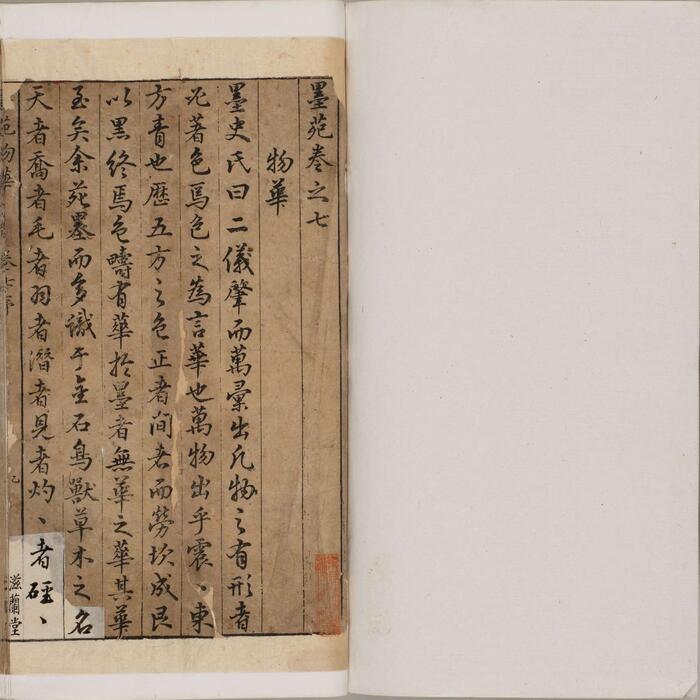 墨苑卷之七
物華
墨史氏曰二儀肇而萬彙出凡物之有形者
必著色焉色之為言華也萬物出乎震、東
方青也歷五方之色正者間者而勞坎成艮
以黑終焉色疇有華於墨者無華之華其華
至矣余苑墨而多識于金石鳥獸草木之名
天者喬者毛者羽者潛者見者灼、者硜、
苑物華 卷七序
滋蘭堂